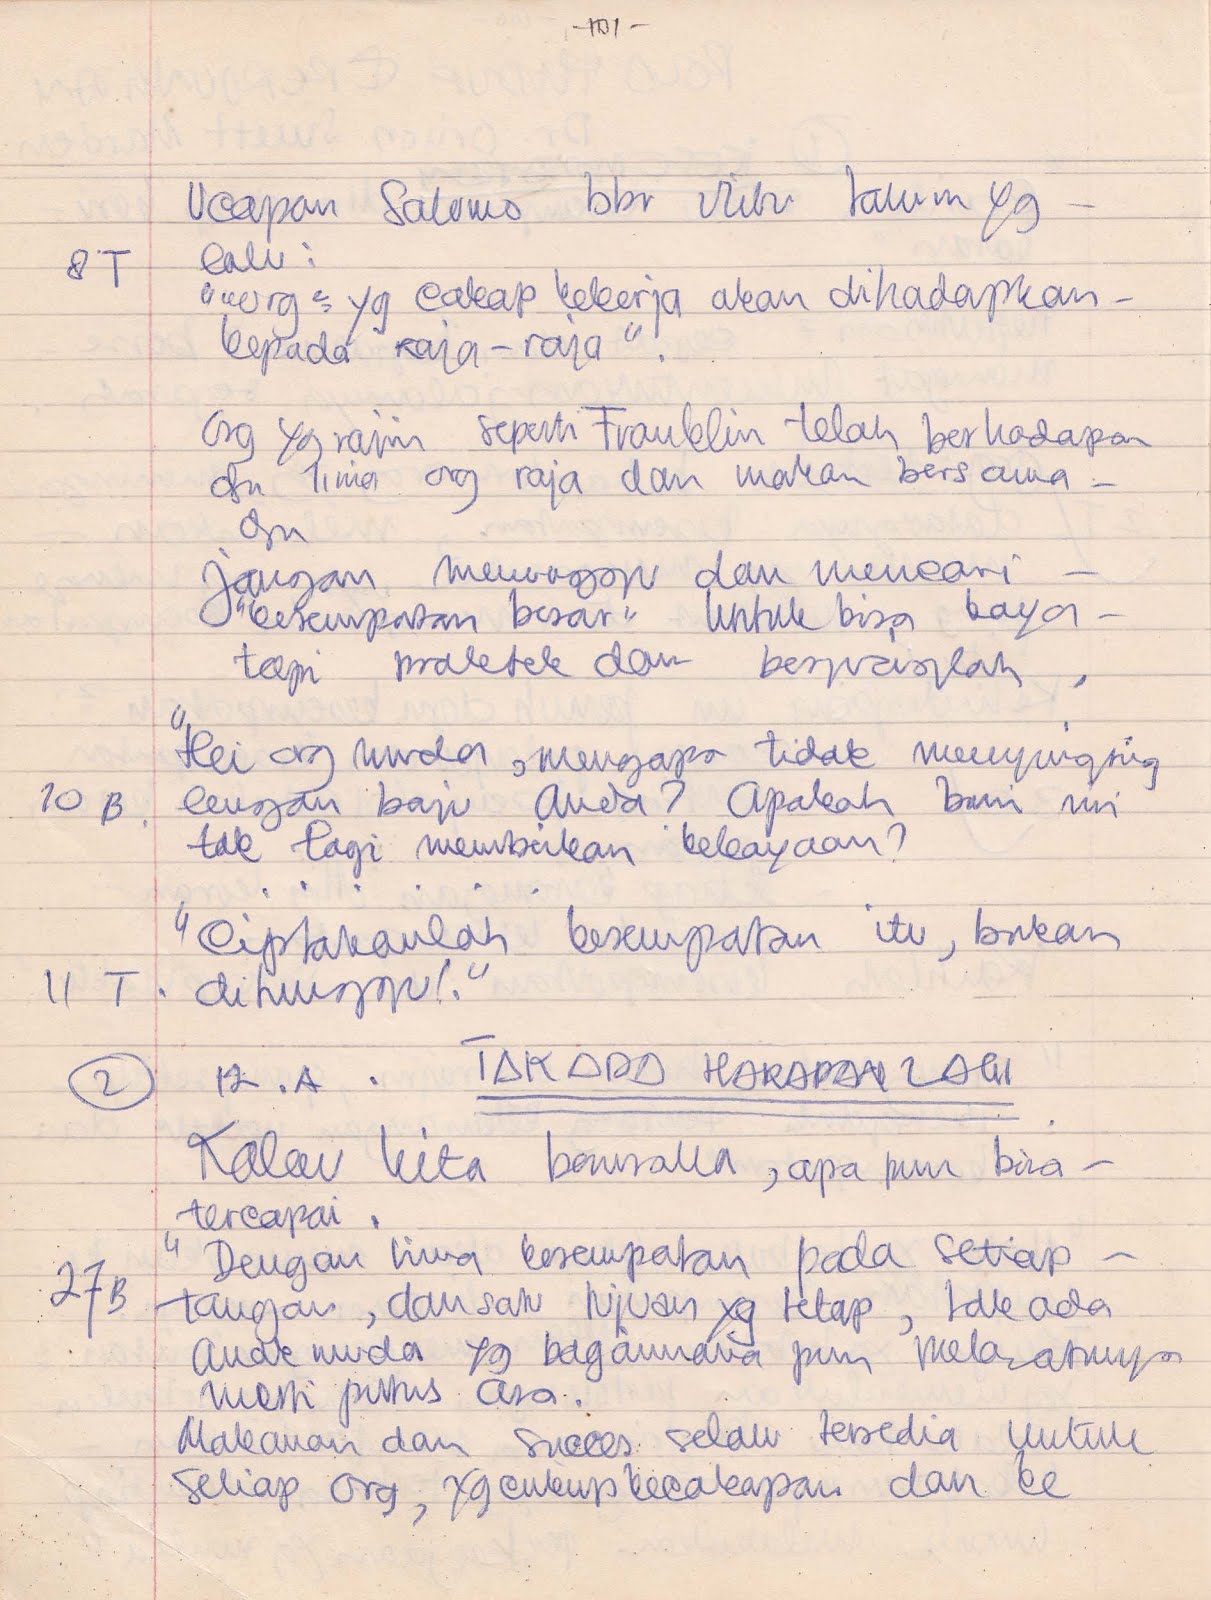 -101-
Ucapan Salomo bbr ribu tahun yg -
8 T lalu :
""org² yg cakap bekerja akan dihadapkan -
kepada raja-raja".
Org yg rajin seperti Franklin telah berhadapan
dgn lima org raja dan makan bersama -
dgn
jangan menunggu dan mencari -
"kesempatan besar" untuk bisa kaya -
tapi praktek dan
"Hei org muda, mengapa tidak menyingsing
10 B. lengan baju Anda? Apakah bumi ini
tak lagi memberikan kekayaan?
. . . . . .
"Ciptakanlah kesempatan itu, bukan
11 T. ditunggu!."
2 12.A. TAK ADA HARAPAN LAGI
Kalau kita berusaha, apa pun bisa -
tercapai.
"Dengan lima kesempatan pada setiap -
27 B tangan, dan satu tujuan yg tetap, tak ada
Anak muda yg bagaimana pun melaratnya
mesti putus asa.
Makanan dan succes selalu tersedia untuk
setiap org, yg cukup kecakapan dan ke